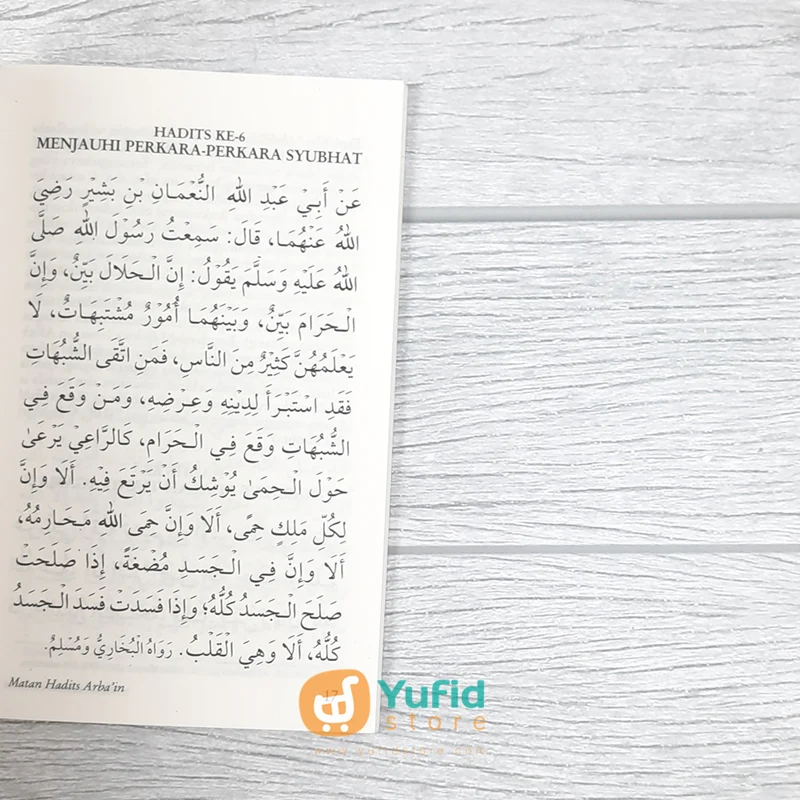 HADITS KE-6
MENJAUHI PERKARA-PERKARA SYUBHAT
عَنْ أَبِيْ عَبْدِ اللهِ النُّعْمَانِ بْنِ بَشِيْرٍ رَضِيَ
اللهُ عَنْهُمَا، قَالَ: سَمِعْتُ رَسُوْلَ اللهِ صَلَّى
اللهُ عَلَيْهِ وَسَلَّمَ يَقُوْلُ: إِنَّ الْحَلَالَ بَيِّنٌ، وَإِنَّ
الْحَرَامَ بَيِّنٌ، وَبَيْنَهُمَا أُمُوْرٌ مُشْتَبِهَاتٌ، لَا
يَعْلَمُهُنَّ كَثِيْرٌ مِنَ النَّاسِ، فَمَنِ اتَّقَى الشُّبُهَاتِ
فَقَدِ اسْتَبْرَأَ لِدِيْنِهِ وَعِرْضِهِ، وَمَنْ وَقَعَ فِي
الشُّبُهَاتِ وَقَعَ فِي الْحَرَامِ، كَالرَّاعِيْ يَرْعَىٰ
حَوْلَ الْحِمَىٰ يُوْشِكُ أَنْ يَرْتَعَ فِيْهِ. أَلَا وَإِنَّ
لِكُلِّ مَلِكٍ حِمًى، أَلَا وَإِنَّ حِمَى اللهِ مَحَارِمُهُ،
أَلَا وَإِنَّ فِي الْجَسَدِ مُضْغَةً، إِذَا صَلَحَتْ
صَلَحَ الْجَسَدُ كُلُّهُ؛ وَإِذَا فَسَدَتْ فَسَدَ الْجَسَدُ
كُلُّهُ، أَلَا وَهِيَ الْقَلْبُ. رَوَاهُ الْبُخَارِيُّ وَمُسْلِمٌ.
Matan Hadits Arba'in
17
Yufid
store